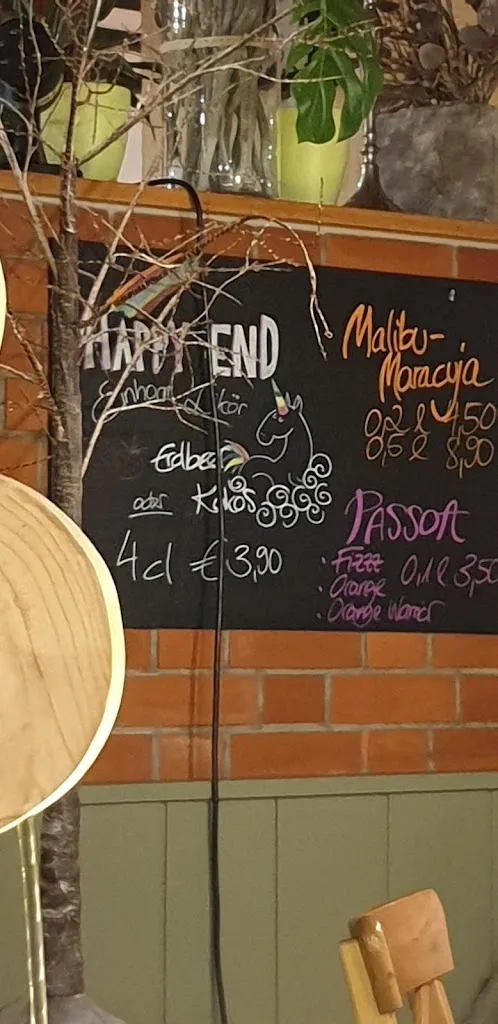 HAPPY END
Einhorn Likör
Erdbeer
oder Kokos
4cl € 3,90
Malibu-
Maracuja
0,2 l 4,50
0,5 l 8,90
PASSOA
· Fizzz 0,1 l 3,50
· Orange
· Orange Warrior